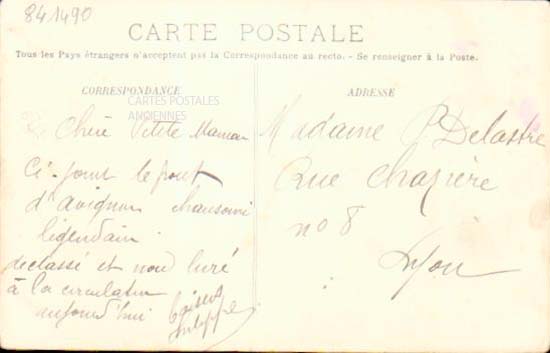 841490
CARTE POSTALE
Tous les Pays étrangers n'acceptent pas la Correspondance au recto. - Se renseigner à la Poste.
CORRESPONDANCE
CARTES POSTALES
ANCIENNES
Chère Petite Maman
Ci-joint le pont
d'avignon chanson
légendair
declassé et non livré
à la circulation
aujourd'hui
baisers
Philippe
ADRESSE
Madame P Delastre
Rue Chazière
no 8
Lyon